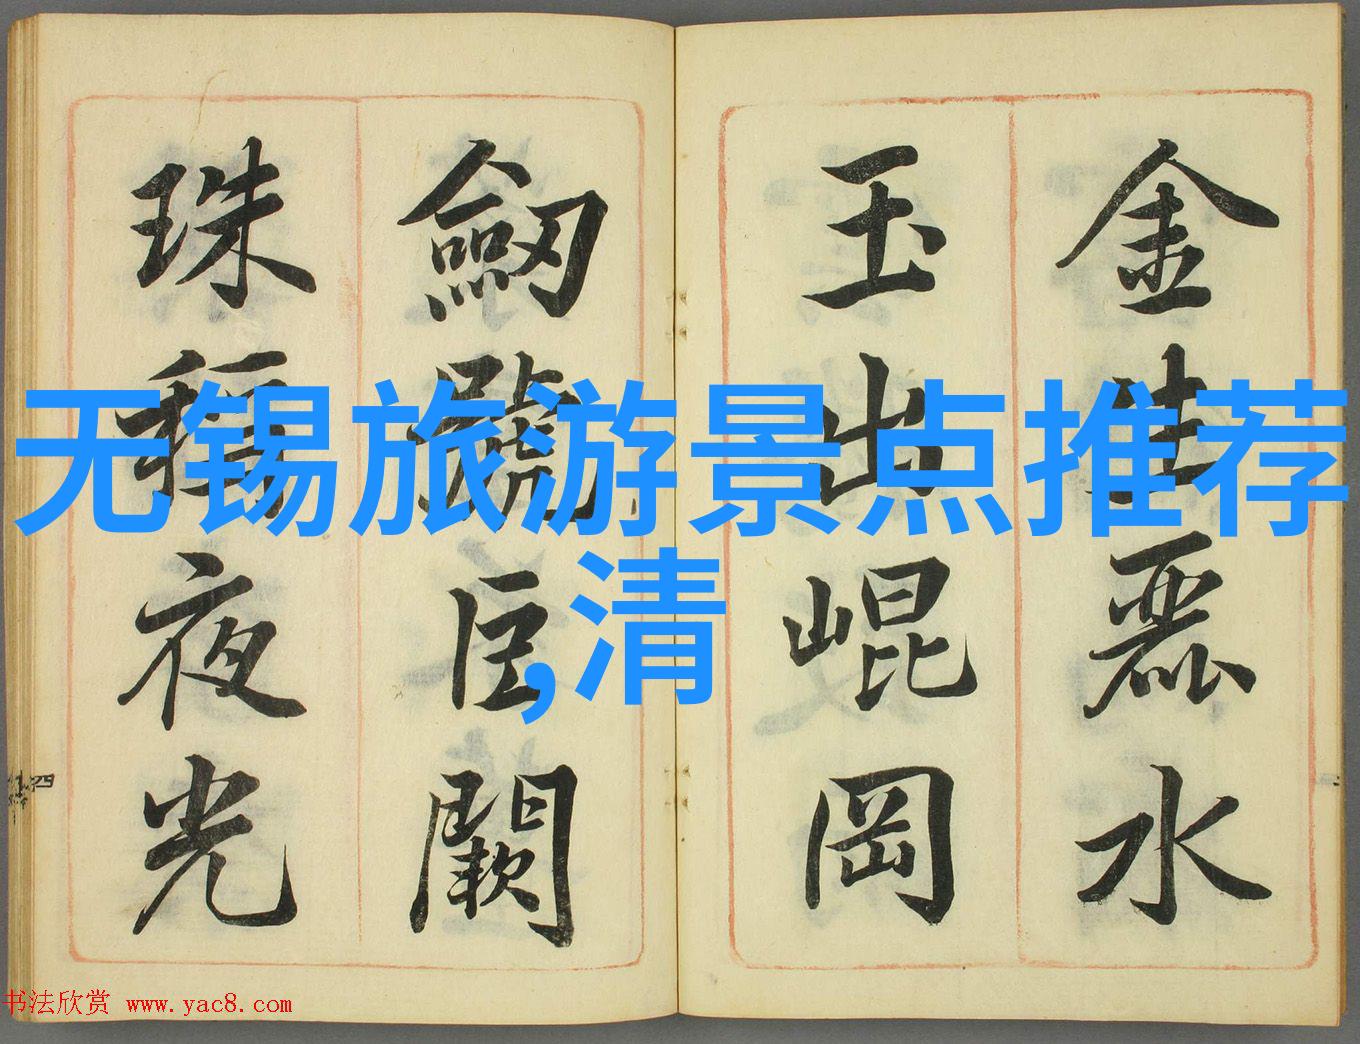 金生麗水
玉出崐岡
劒號巨闕
珠稱夜光
无锡旅游景点推荐
,清
书法欣赏 www.yac8.com